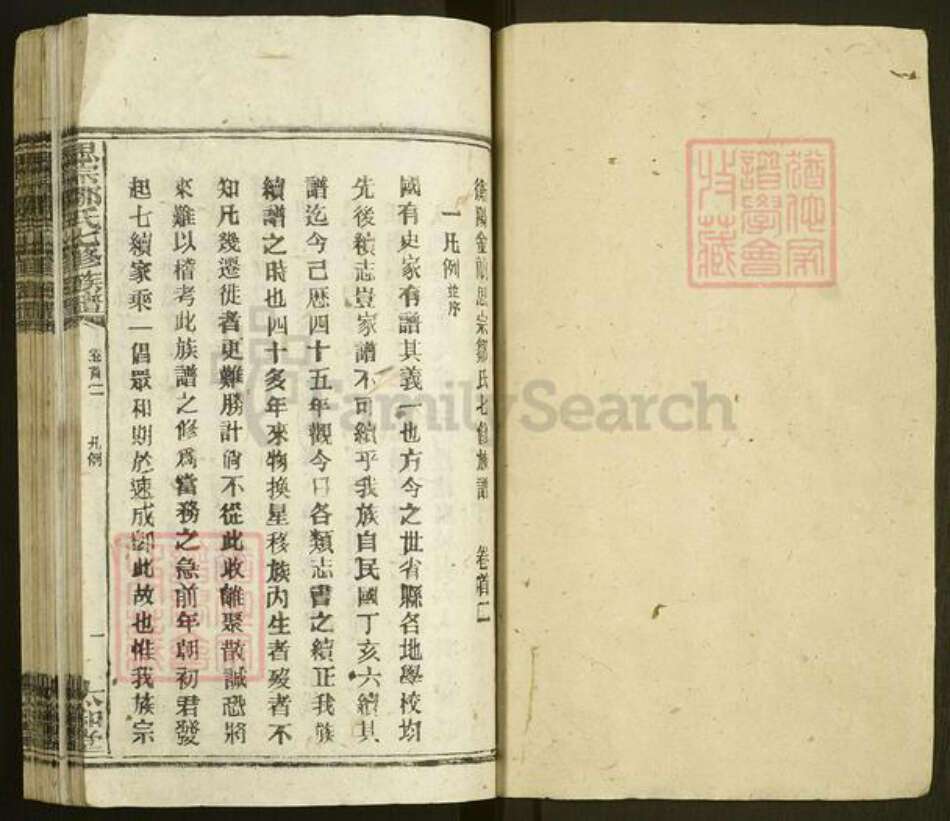 衡陽金
思宗鄒氏七修族譜 卷首二
一凡例並序
國有史家有譜其義一也方今之世省縣各地學校均
先後續志豈家譜不可續乎我族自民國丁亥六續其
譜迄今己歷四十五年觀今日各類志書之續正我族
續譜之時也四十多年來物換星移族內生者歿者不
知凡幾遷徙者更難勝計倘不從此收離聚散誠恐將
來難以稽考此族譜之修爲當務之急前年朝初君發
起七續家乘一倡眾和則於速成卽此故也惟我族宗
思宗鄒氏七修族譜
卷首二
凡例
一
FamilySearch